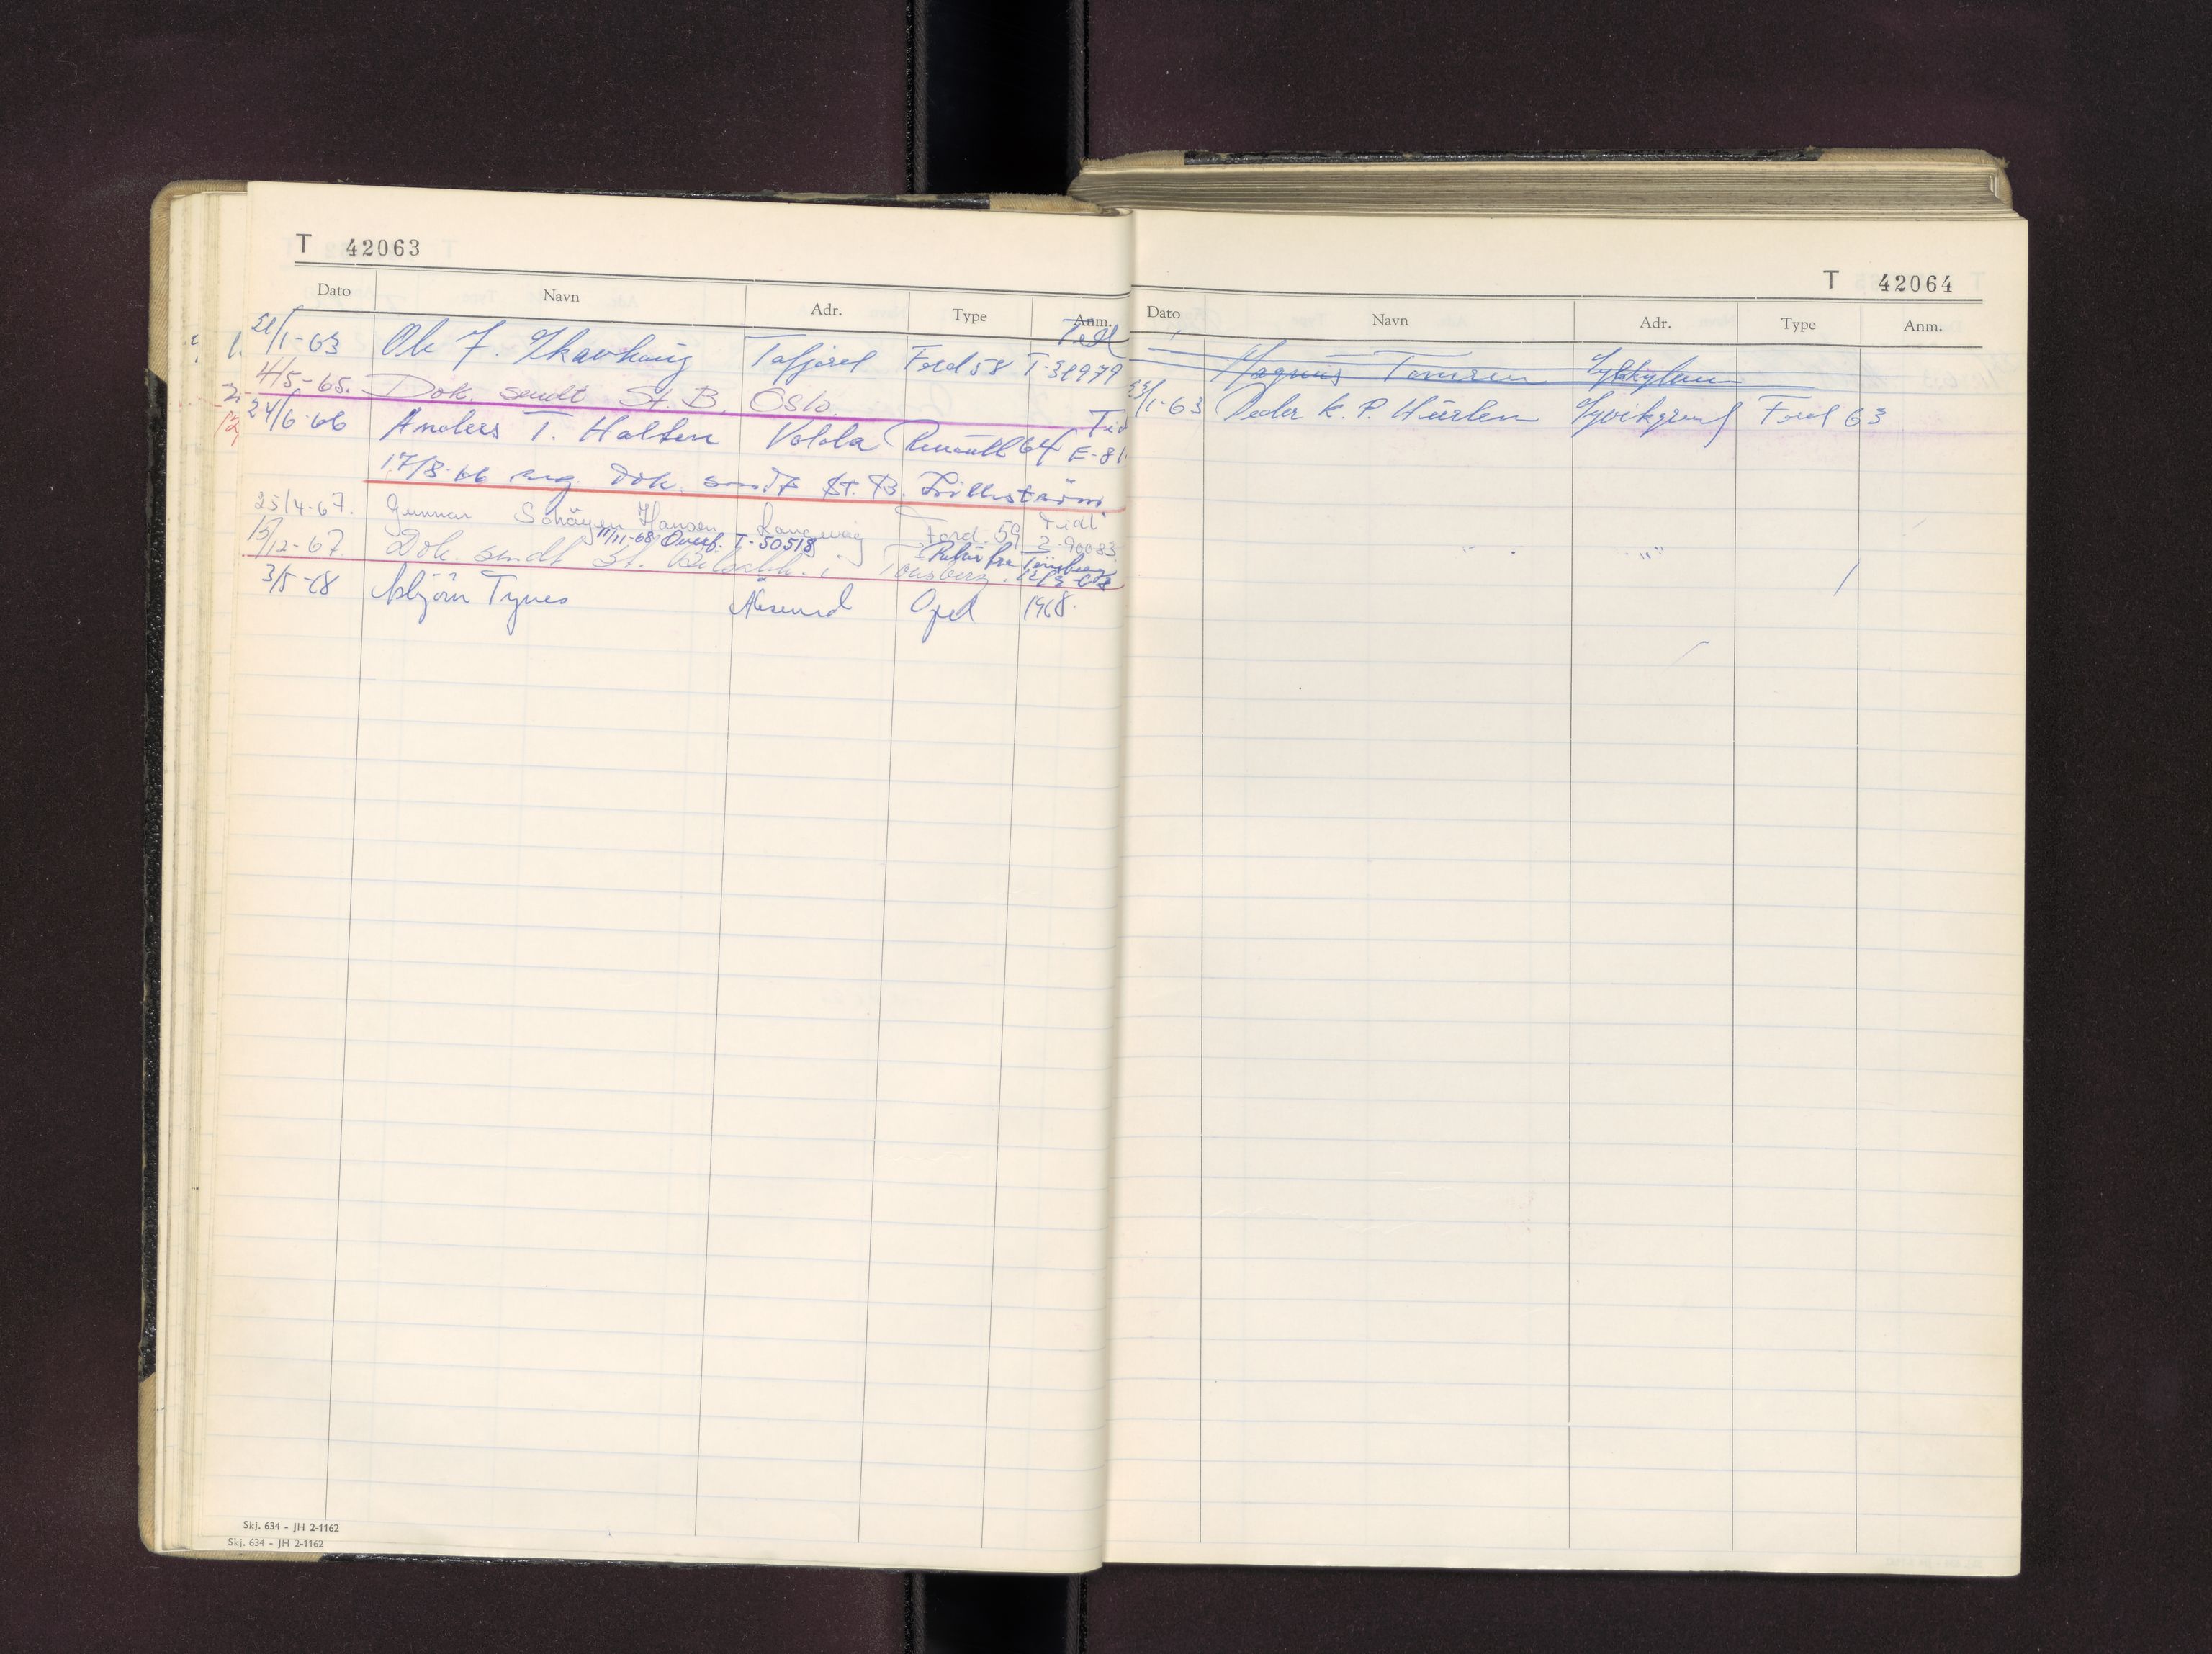 T 42063
Dato Navn Adr. Type Anm.
Tidl
21/1-63 Ole J. Skavhaug Tafjord Ford 58 T-38979
4/5-65. Dok. sendt St. B. Oslo.
24/6-66 Anders T. Halten Volda Renault 64 Tid E-81
17/8-66 reg. Dok. sendt St. B. Lillestrøm.
25/4-67. Gunnar Schäyen Hansen Langevåg Ford. 59 Tidl 2-90083
11/11-68 Overf. T-50518 Retur fra Tønsberg 12/3-68
15/12-67. Dok. sendt St. Bilsakk. i Tønsberg.
3/5-68 Asbjörn Tynes Ålesund Opel 1968.
Skj. 634 - JH 2-1162
Skj. 634 - JH 2-1162
T 42064
Dato Navn Adr. Type Anm.
Magnus Sykkylven
23/1-63 Peder K. P. Hurlen Syvikgrend Ford 63